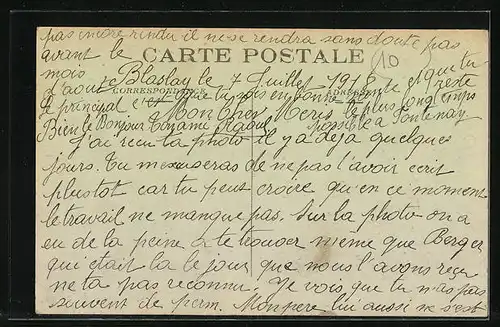 pas encore rendu il ne se rendra sans doute pas
avant le
mois
d'aout
CARTE POSTALE
10
CORRESPONDANCE
ADRESSE
Blaslay le 7 Juillet 1918
Le principal c'est que tu sois en bonne et que tu
reste
le plus longtemps
possible a Fontenay
Bien le Bonjour Ton ami Raoul
Mon cher
J'ai reçu ta photo il y a déja quelques
jours. Tu mexcuseras de ne pas l'avoir ecrit
plustot car tu peut croire qu'en ce moment
le travail ne manque pas. Sur la photo on a
eu de la peine a te trouver meme que Berger
qui était la le jour que nous l'avons reçu
ne ta pas reconnu. Je vois que tu n'as pas
souvent de perm. Mon pere lui aussi ne s'est